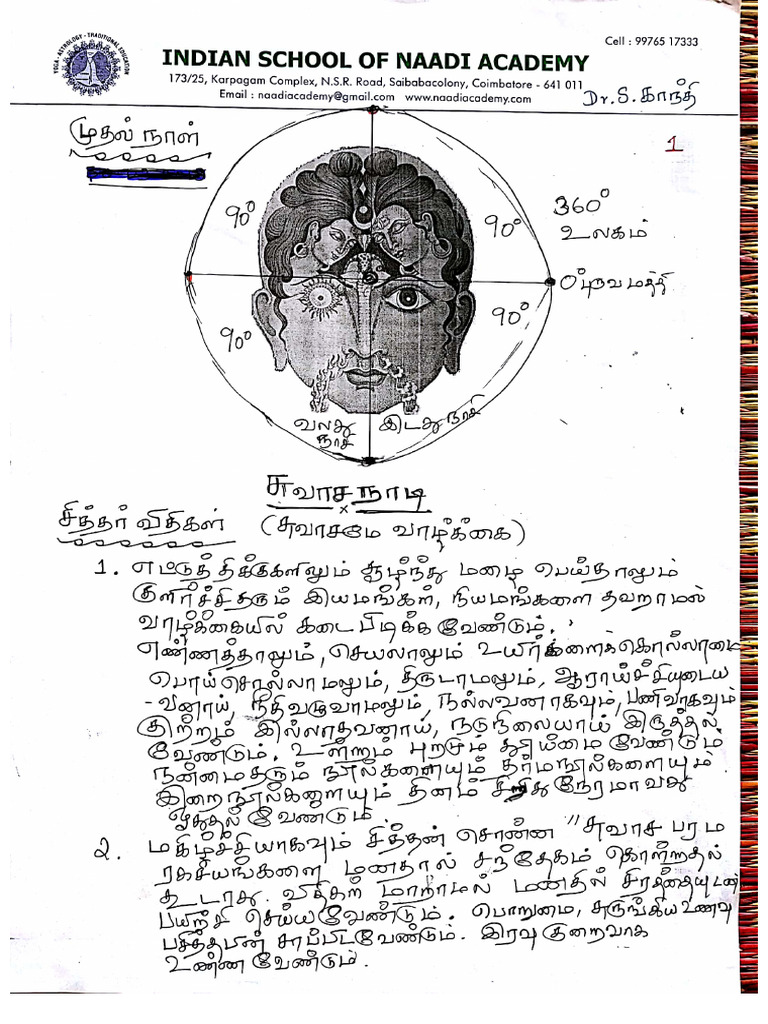 Cell : 99765 17333
YOGA - ASTROLOGY - TRADITIONAL EDUCATION
INDIAN SCHOOL OF NAADI ACADEMY
173/25, Karpagam Complex, N.S.R. Road, Saibabacolony, Coimbatore - 641 011
Email : naadiacademy@gmail.com www.naadiacademy.com
Dr. S. காந்தி
முதல் நாள்
1
90°
90°
360°
உலகம்
புருவ மத்தி
90°
90°
வலது நாசி
இடது நாசி
சுவாச நாடி
சித்தர் விதிகள் (சுவாசமே வாழ்க்கை)
1. எட்டுத் திக்குகளிலும் சூழ்ந்து மழை பெய்தாலும்
குளிர்ச்சிதரும் இயமங்கள், நியமங்களை தவறாமல்
வாழ்க்கையில் கடைபிடிக்க வேண்டும்.
எண்ணத்தாலும், செயலாலும் உயிர்களைக்கொல்லாமை
பொய்சொல்லாமலும், திருடாமலும், ஆராய்ச்சியுடைய
-வனாய், நீதிவழுவாமலும், நல்லவனாகவும், பணிவாகவும்
குற்றம் இல்லாதவனாய், நடுநிலையாய் இருத்தல்
வேண்டும். உள்ளும் புறமும் தூய்மை வேண்டும்.
நன்மைதரும் நூல்களையும் தர்மநூல்களையும்
இறைநூல்களையும் தினம் சிறிது நேரமாவது
ஓதுதல் வேண்டும்.
2. மகிழ்ச்சியாகவும் சித்தன் சொன்ன "சுவாச பரம
ரகசியங்களை மனதால் சந்தேகம் கொள்றதல்
கூடாது. விதிகள் மாறாமல் மனதில் சிரத்தையுடன்
பயிற்சி செய்யவேண்டும். பொறுமை, சுருங்கிய உணவு
பசித்தபின் சாப்பிடவேண்டும். இரவு குறைவாக
உண்ண வேண்டும்.